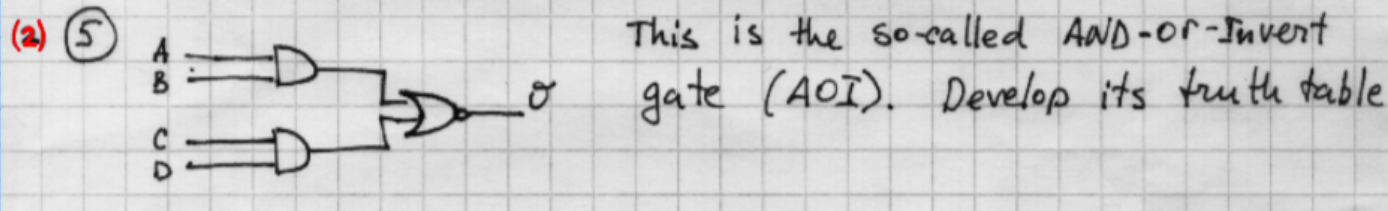 (2) 5
This is the so-called AND-or-Invert
gate (AOI). Develop its truth table
A
B
σ
C
D